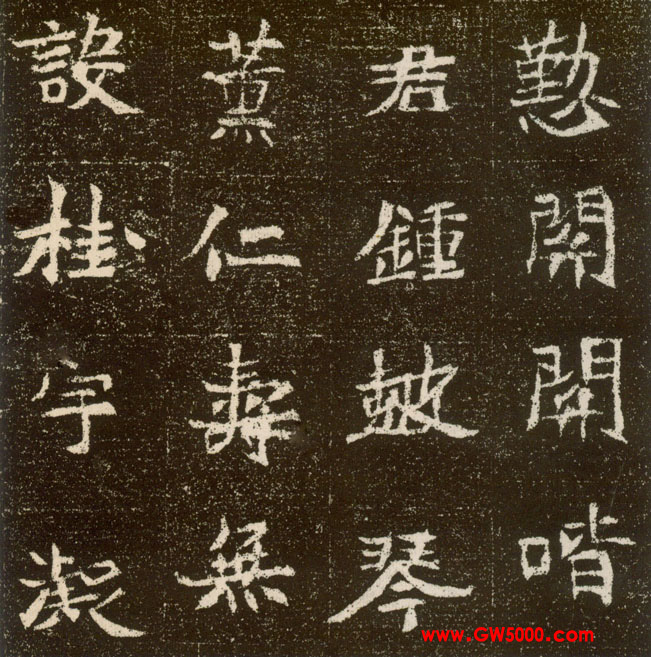 懃開開喈
君鍾皷琴
薰仁壽無
設桂宇
www.GW5000.com